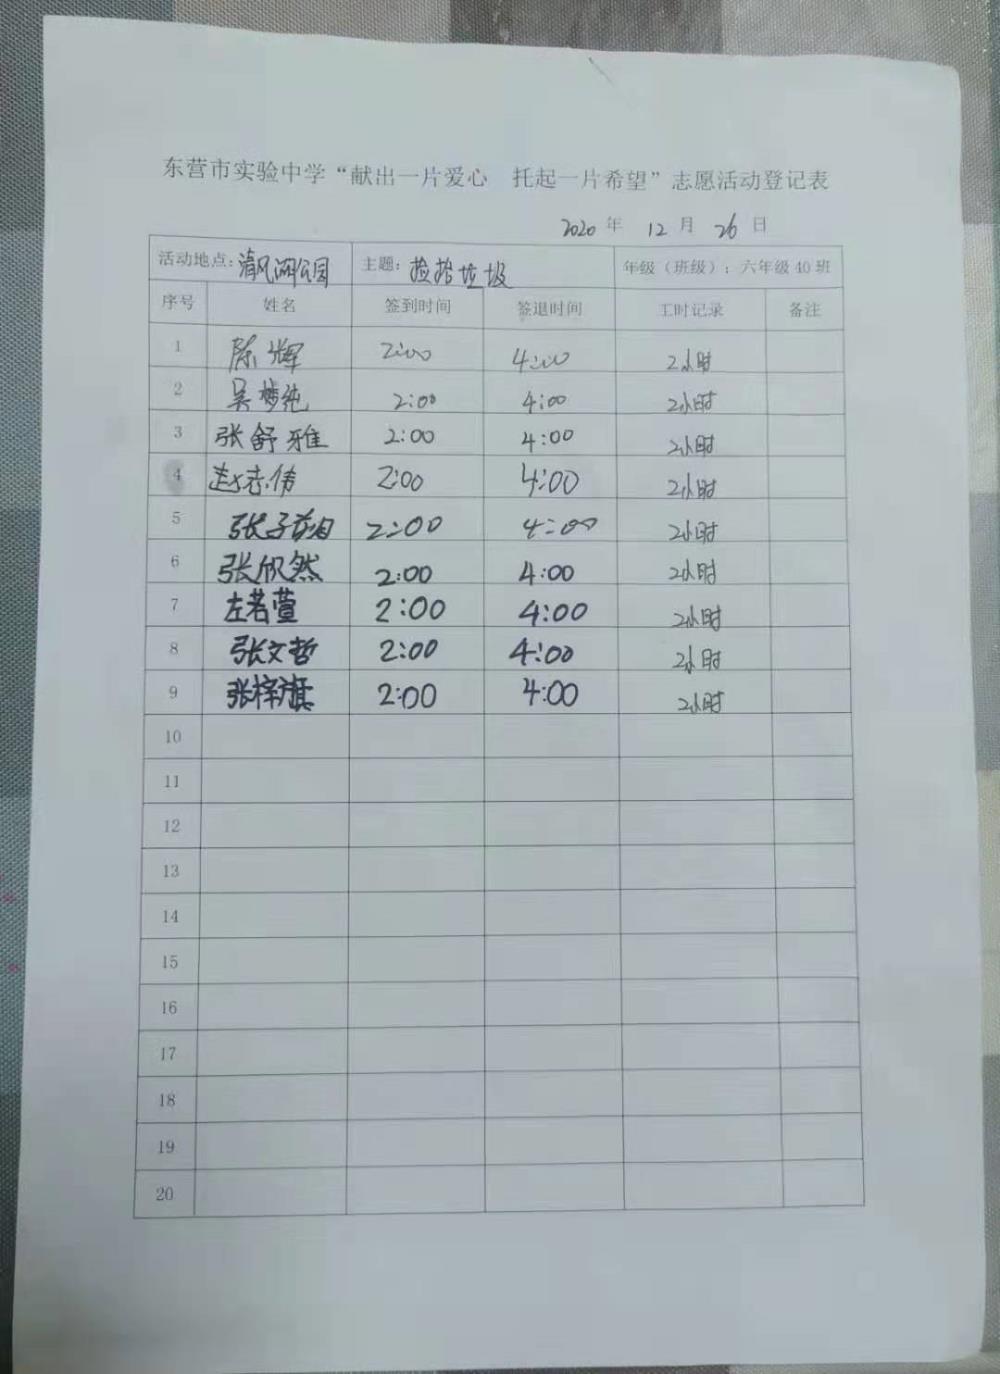 东营市实验中学“献出一片爱心 托起一片希望”志愿活动登记表
2020 年 12 月 26 日
活动地点：清风湖公园 主题：捡拾垃圾 年级（班级）：六年级40班
序号 姓名 签到时间 签退时间 工时记录 备注
1 陈辉 2:00 4:00 2小时
2 吴梦纯 2:00 4:00 2小时
3 张舒雅 2:00 4:00 2小时
4 赵志伟 2:00 4:00 2小时
5 张子 2:00 4:00 2小时
6 张欣然 2:00 4:00 2小时
7 左若萱 2:00 4:00 2小时
8 张文哲 2:00 4:00 2小时
9 张梓旗 2:00 4:00 2小时
10
11
12
13
14
15
16
17
18
19
20